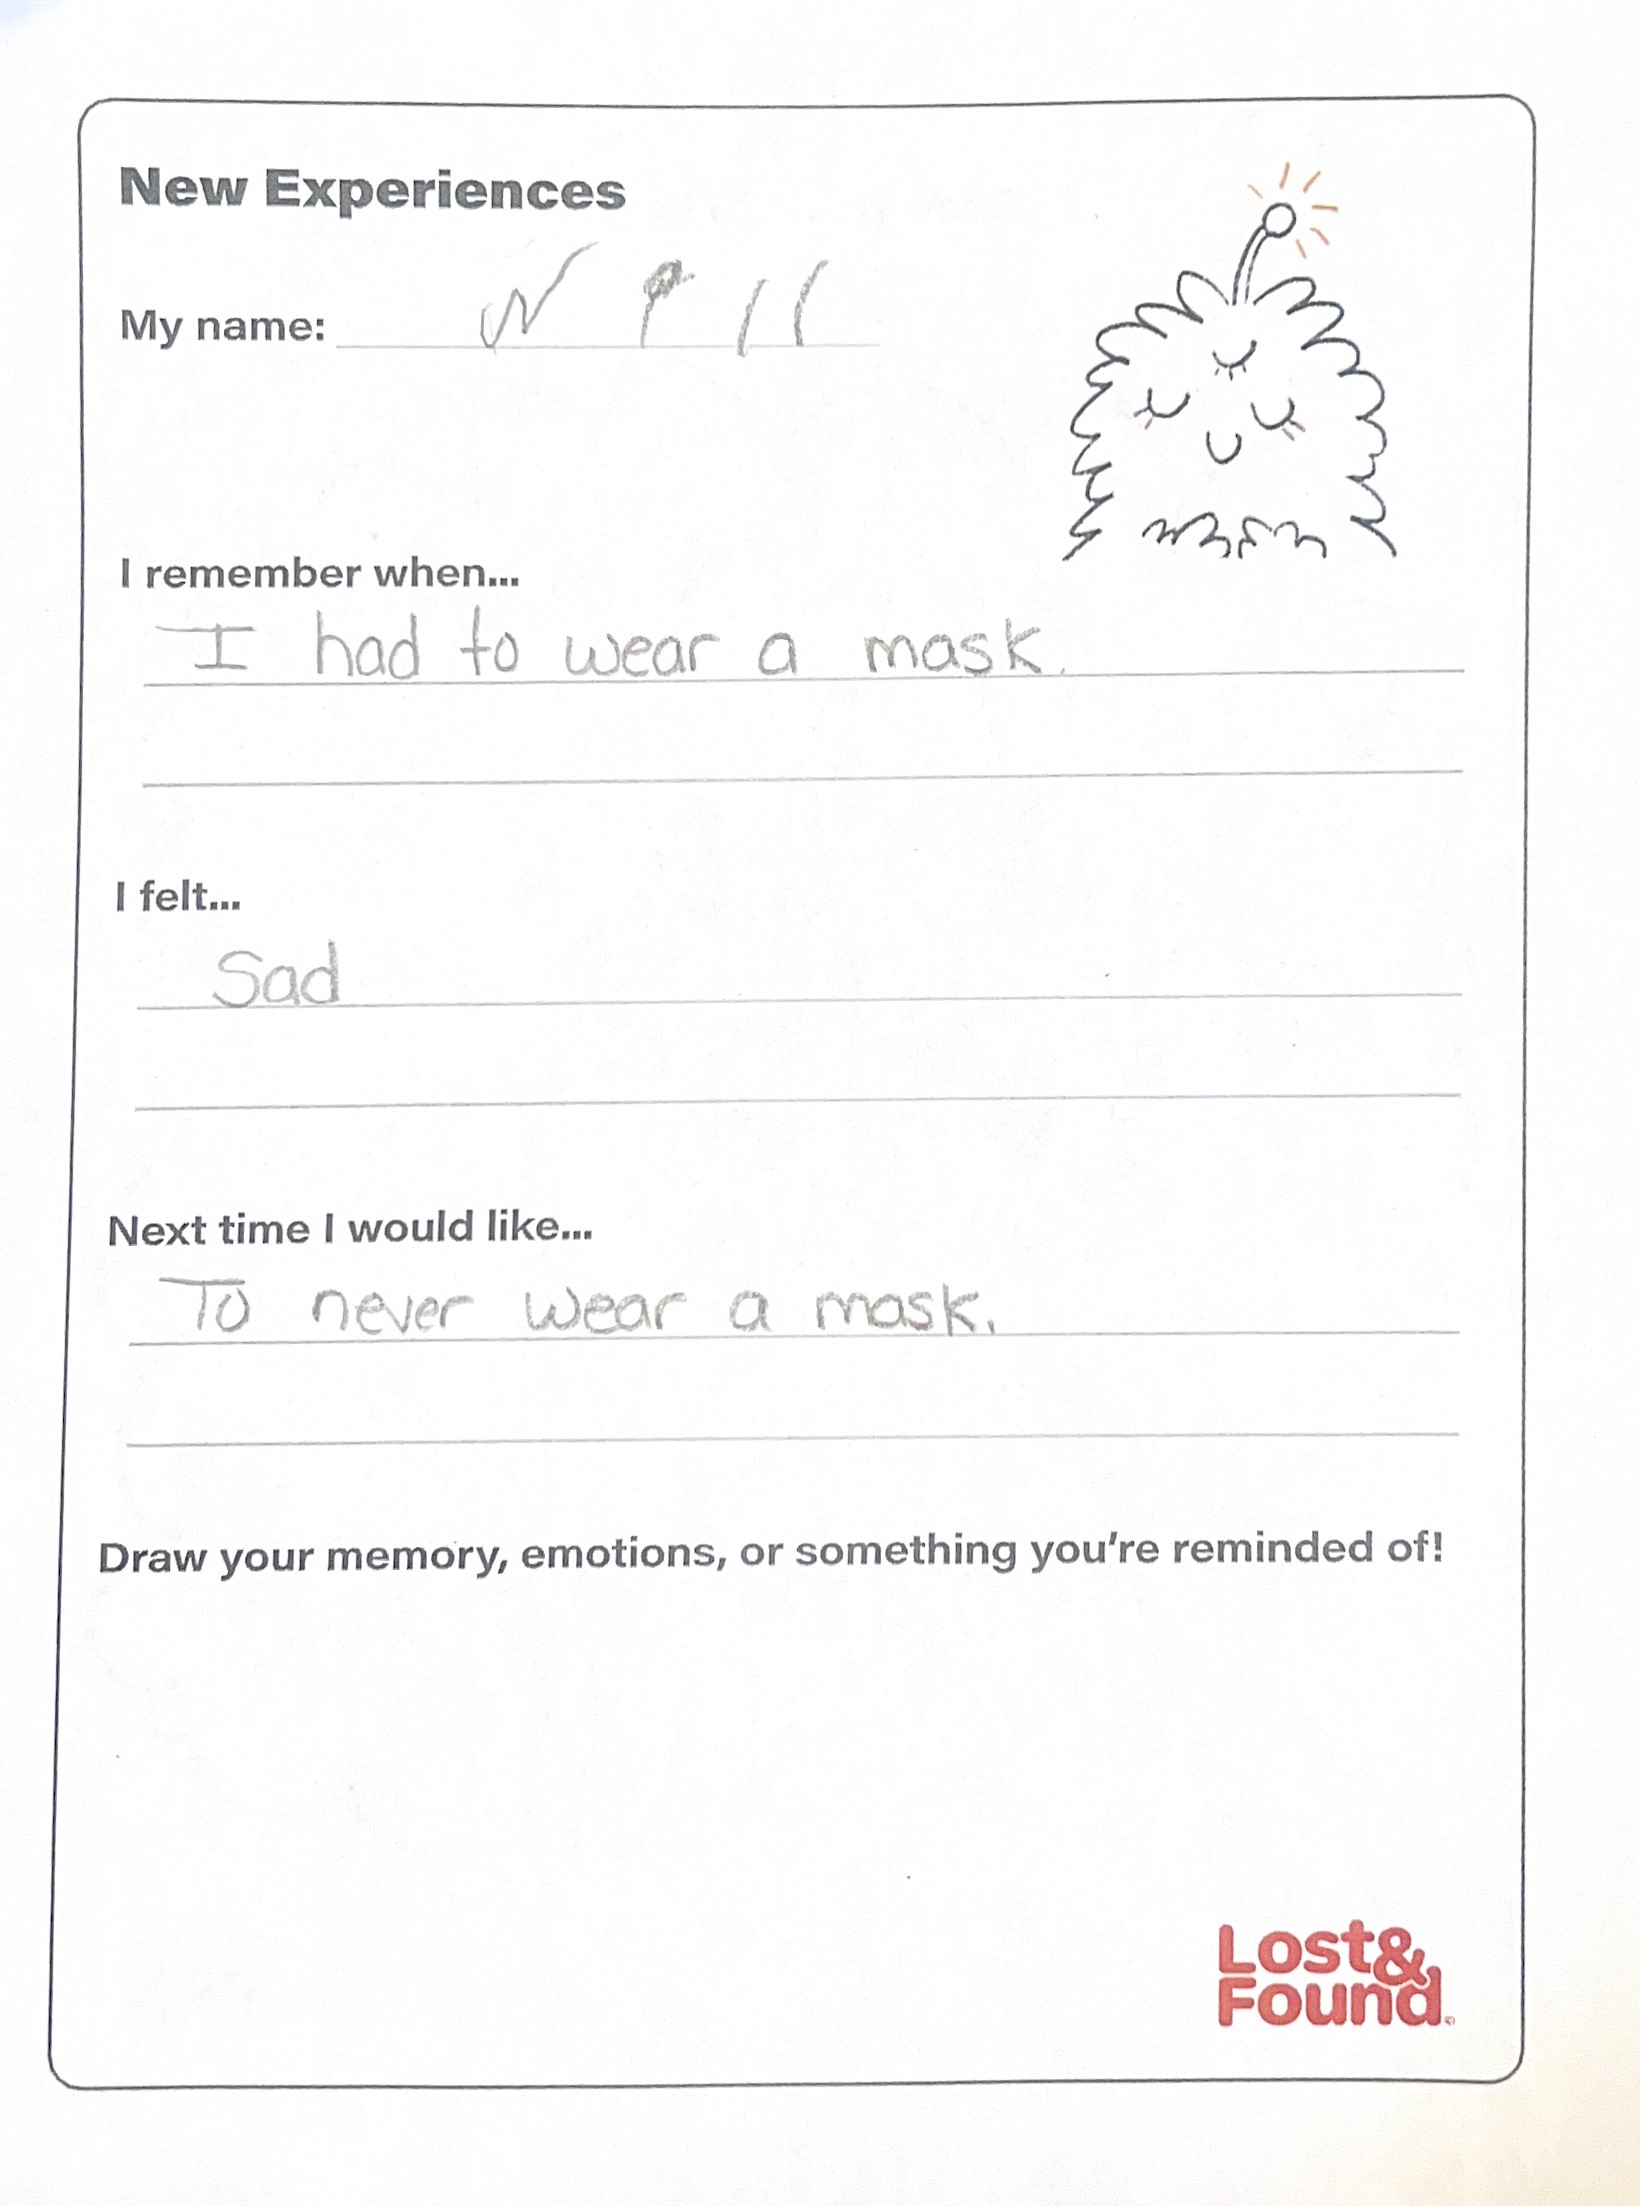 New Experiences
My name:
I remember when...
I had to wear a mask.
I felt...
Sad
Next time I would like...
To never wear a mask.
Draw your memory, emotions, or something you're reminded of!
Lost&
Found